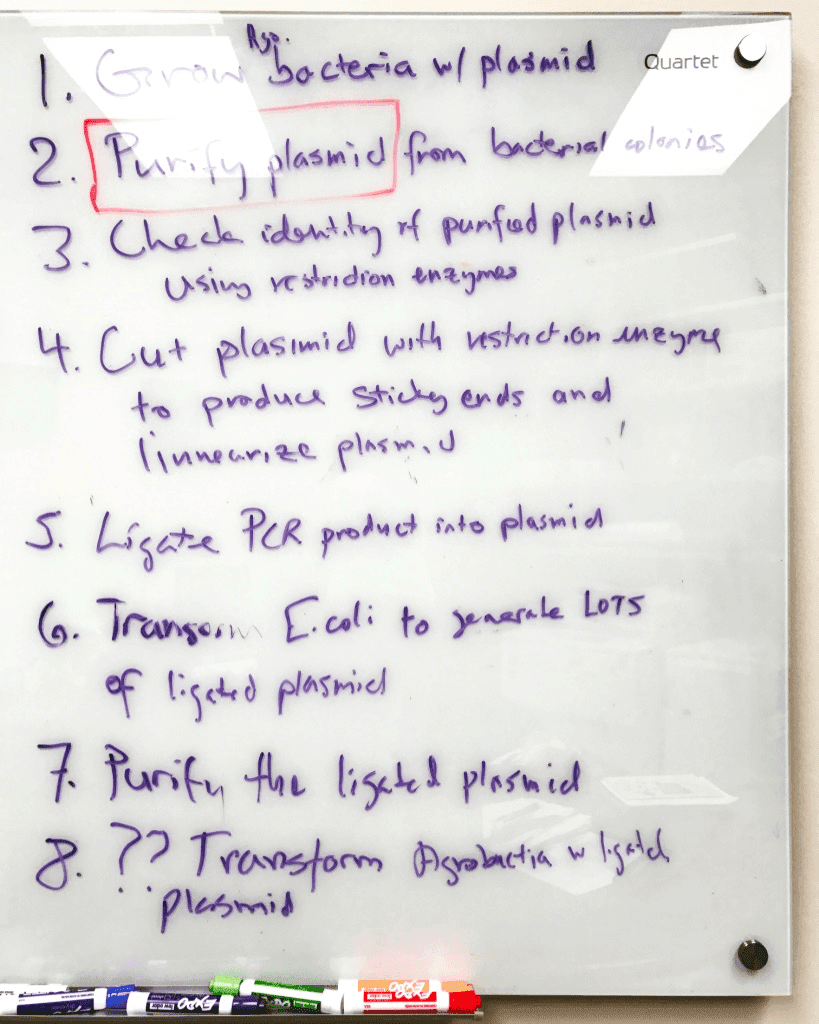 Ago.
1. Grow bacteria w/ plasmid
Quartet
2. Purify plasmid from bacterial colonies
3. Check identity of purified plasmid
using restridion enzymes
4. Cut plasimid with restriction enzyme
to produce sticky ends and
linnearize plasmid
5. Ligate PCR product into plasmid
6. Transorm E.coli to generate LOTS
of ligated plasmid
7. Purify the ligated plasmid
8. ?? Transform Agrobactia w ligated
plasmid
EXPO
EXPO
EXPO